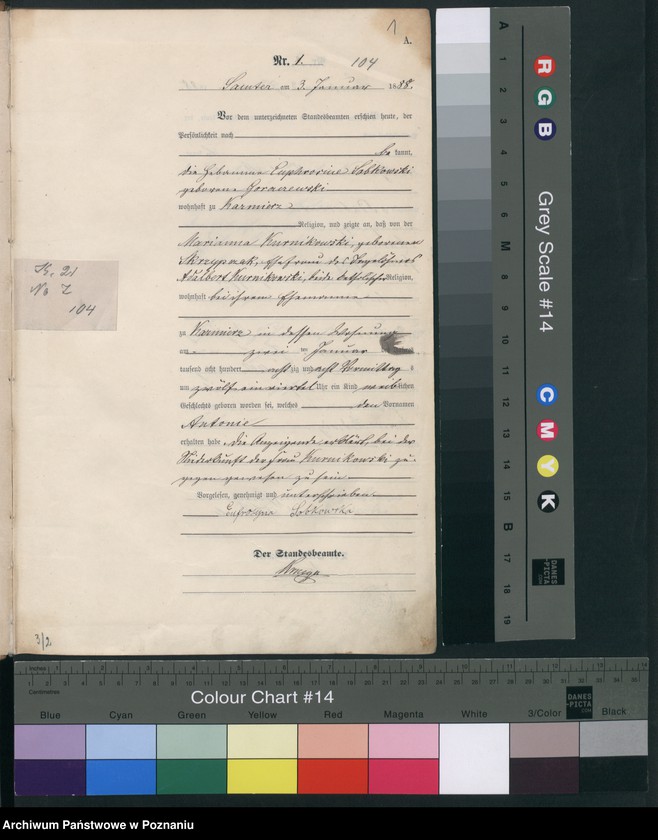 1
A.
Nr. 1. 104
Samter am 3. Januar 1888.
Vor dem unterzeichneten Standesbeamten erschien heute, der
Persönlichkeit nach
be kannt,
die Hebamme Euphrosine Sobkowski
geborene
wohnhaft zu Kazmierz
Religion, und zeigte an, daß von der
Marianna Kurnikowski, geborenen
Skrzypczak, Ehefrau des Tagelöhners
Adalbert Kurnikowski, beide katholischer Religion,
wohnhaft bei ihrem Ehemanne
zu Kazmierz in dessen Wohnung
am zwei ten Januar
tausend acht hundert acht zig und acht Vormittag s
um zwölf einviertel Uhr ein Kind weib lichen
Geschlechts geboren worden sei, welches den Vornamen
Antonie
erhalten habe. Die Anzeigende erklärt, bei der
Niederkunft der Frau Kurnikowski zu-
gegen gewesen zu sein
Vorgelesen, genehmigt und unterschrieben
Eufrozyna Sobkowski
Der Standesbeamte.
K. 21
No 2
104
3/2.
A 1 2 3 4 5 6 M 8 9 10 11 12 13 14 15 B 17 18 19
R
G
B
Grey Scale #14
C
M
Y
K
DANES
-PICTA
.COM
Inches
Centimetres
Colour Chart #14
DANES
-PICTA
.COM
Blue Cyan Green Yellow Red Magenta White 3/Color Black
Archiwum Państwowe w Poznaniu